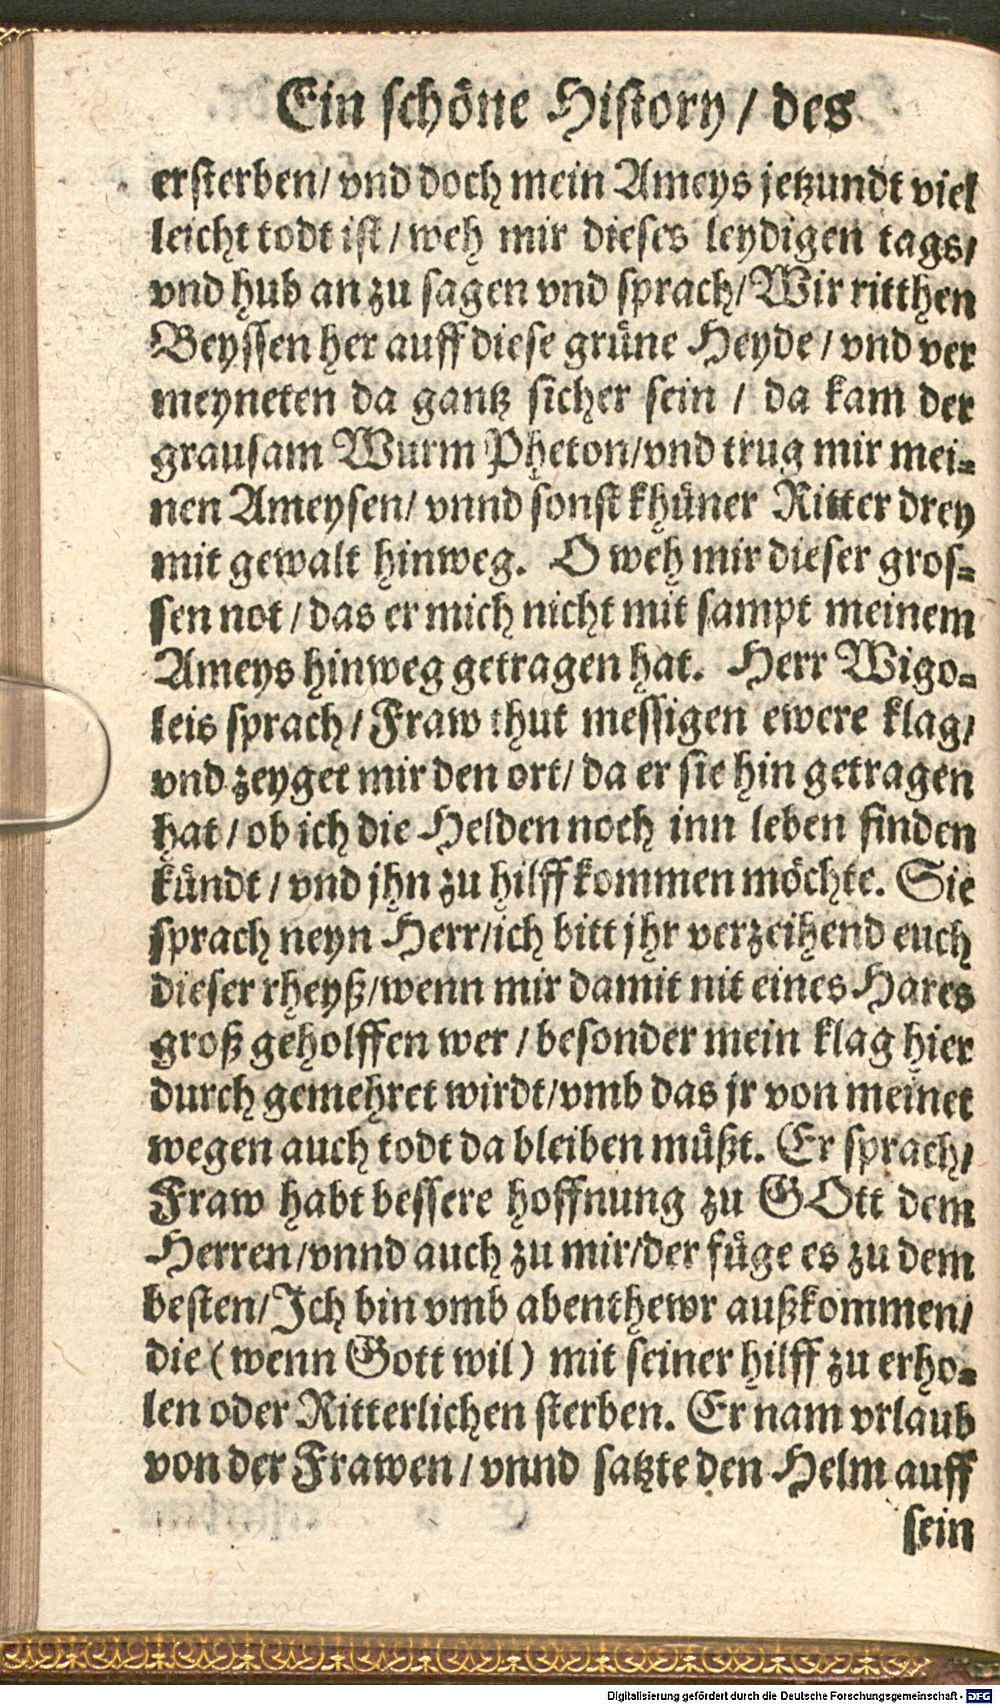 Ein schöne History / des
ersterben / vnd doch mein Ameys jetzundt viel
leicht todt ist / weh mir dieses leydigen tags /
vnd hub an zu sagen vnd sprach / Wir ritthen
Beyssen her auff diese grüne Heyde / vnd ver
meyneten da gantz sicher sein / da kam der
grausam Wurm Pheton / vnd trug mir mei-
nen Ameysen / vnnd sonst khüner Ritter drey
mit gewalt hinweg. O weh mir dieser gros-
sen not / das er mich nicht mit sampt meinem
Ameys hinweg getragen hat. Herr Wigo-
leis sprach / Fraw thut messigen ewere klag /
vnd zeyget mir den ort / da er sie hin getragen
hat / ob ich die Helden noch inn leben finden
kündt / vnd jhn zu hilff kommen möchte. Sie
sprach neyn Herr / ich bitt jhr verzeihend euch
dieser rheyß / wenn mir damit nit eines Hares
groß geholffen wer / besonder mein klag hier
durch gemehret wirdt / vmb das jr von meinet
wegen auch todt da bleiben müßt. Er sprach /
Fraw habt bessere hoffnung zu GOtt dem
Herren / vnnd auch zu mir / der füge es zu dem
besten / Ich bin vmb abenthewr außkommen /
die (wenn Gott wil) mit seiner hilff zu erho-
len oder Ritterlichen sterben. Er nam vrlaub
von der Frawen / vnnd satzte den Helm auff
sein
Digitalisierung gefördert durch die Deutsche Forschungsgemeinschaft - DFG